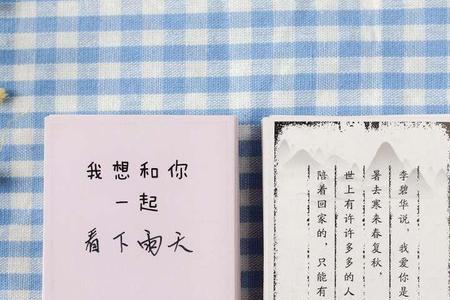 我想和你
一起
看下雨天
李碧华说，我爱你是
暑去寒来春复秋，
世上有许许多多的人
陪着回家的，只能有